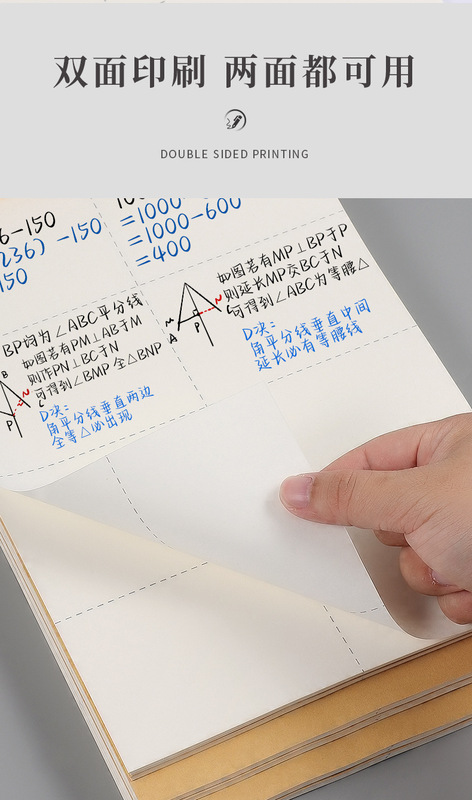 双面印刷 两面都可用
DOUBLE SIDED PRINTING
6-150
236) -150
150
=1000
=1000-600
=400
BP均为∠ABC平分线
如图若有PM⊥AB于M
则作PN⊥BC于N
可得到∠BMP 全△BNP
D决:
角平分线垂直两边
全等△必出现
B
N
P
C
如图若有MP⊥BP于P
则延长MP交BC于N
可得到∠ABC为等腰△
D决:
角平分线垂直中间
延长必有等腰线
M
A
P
N
C